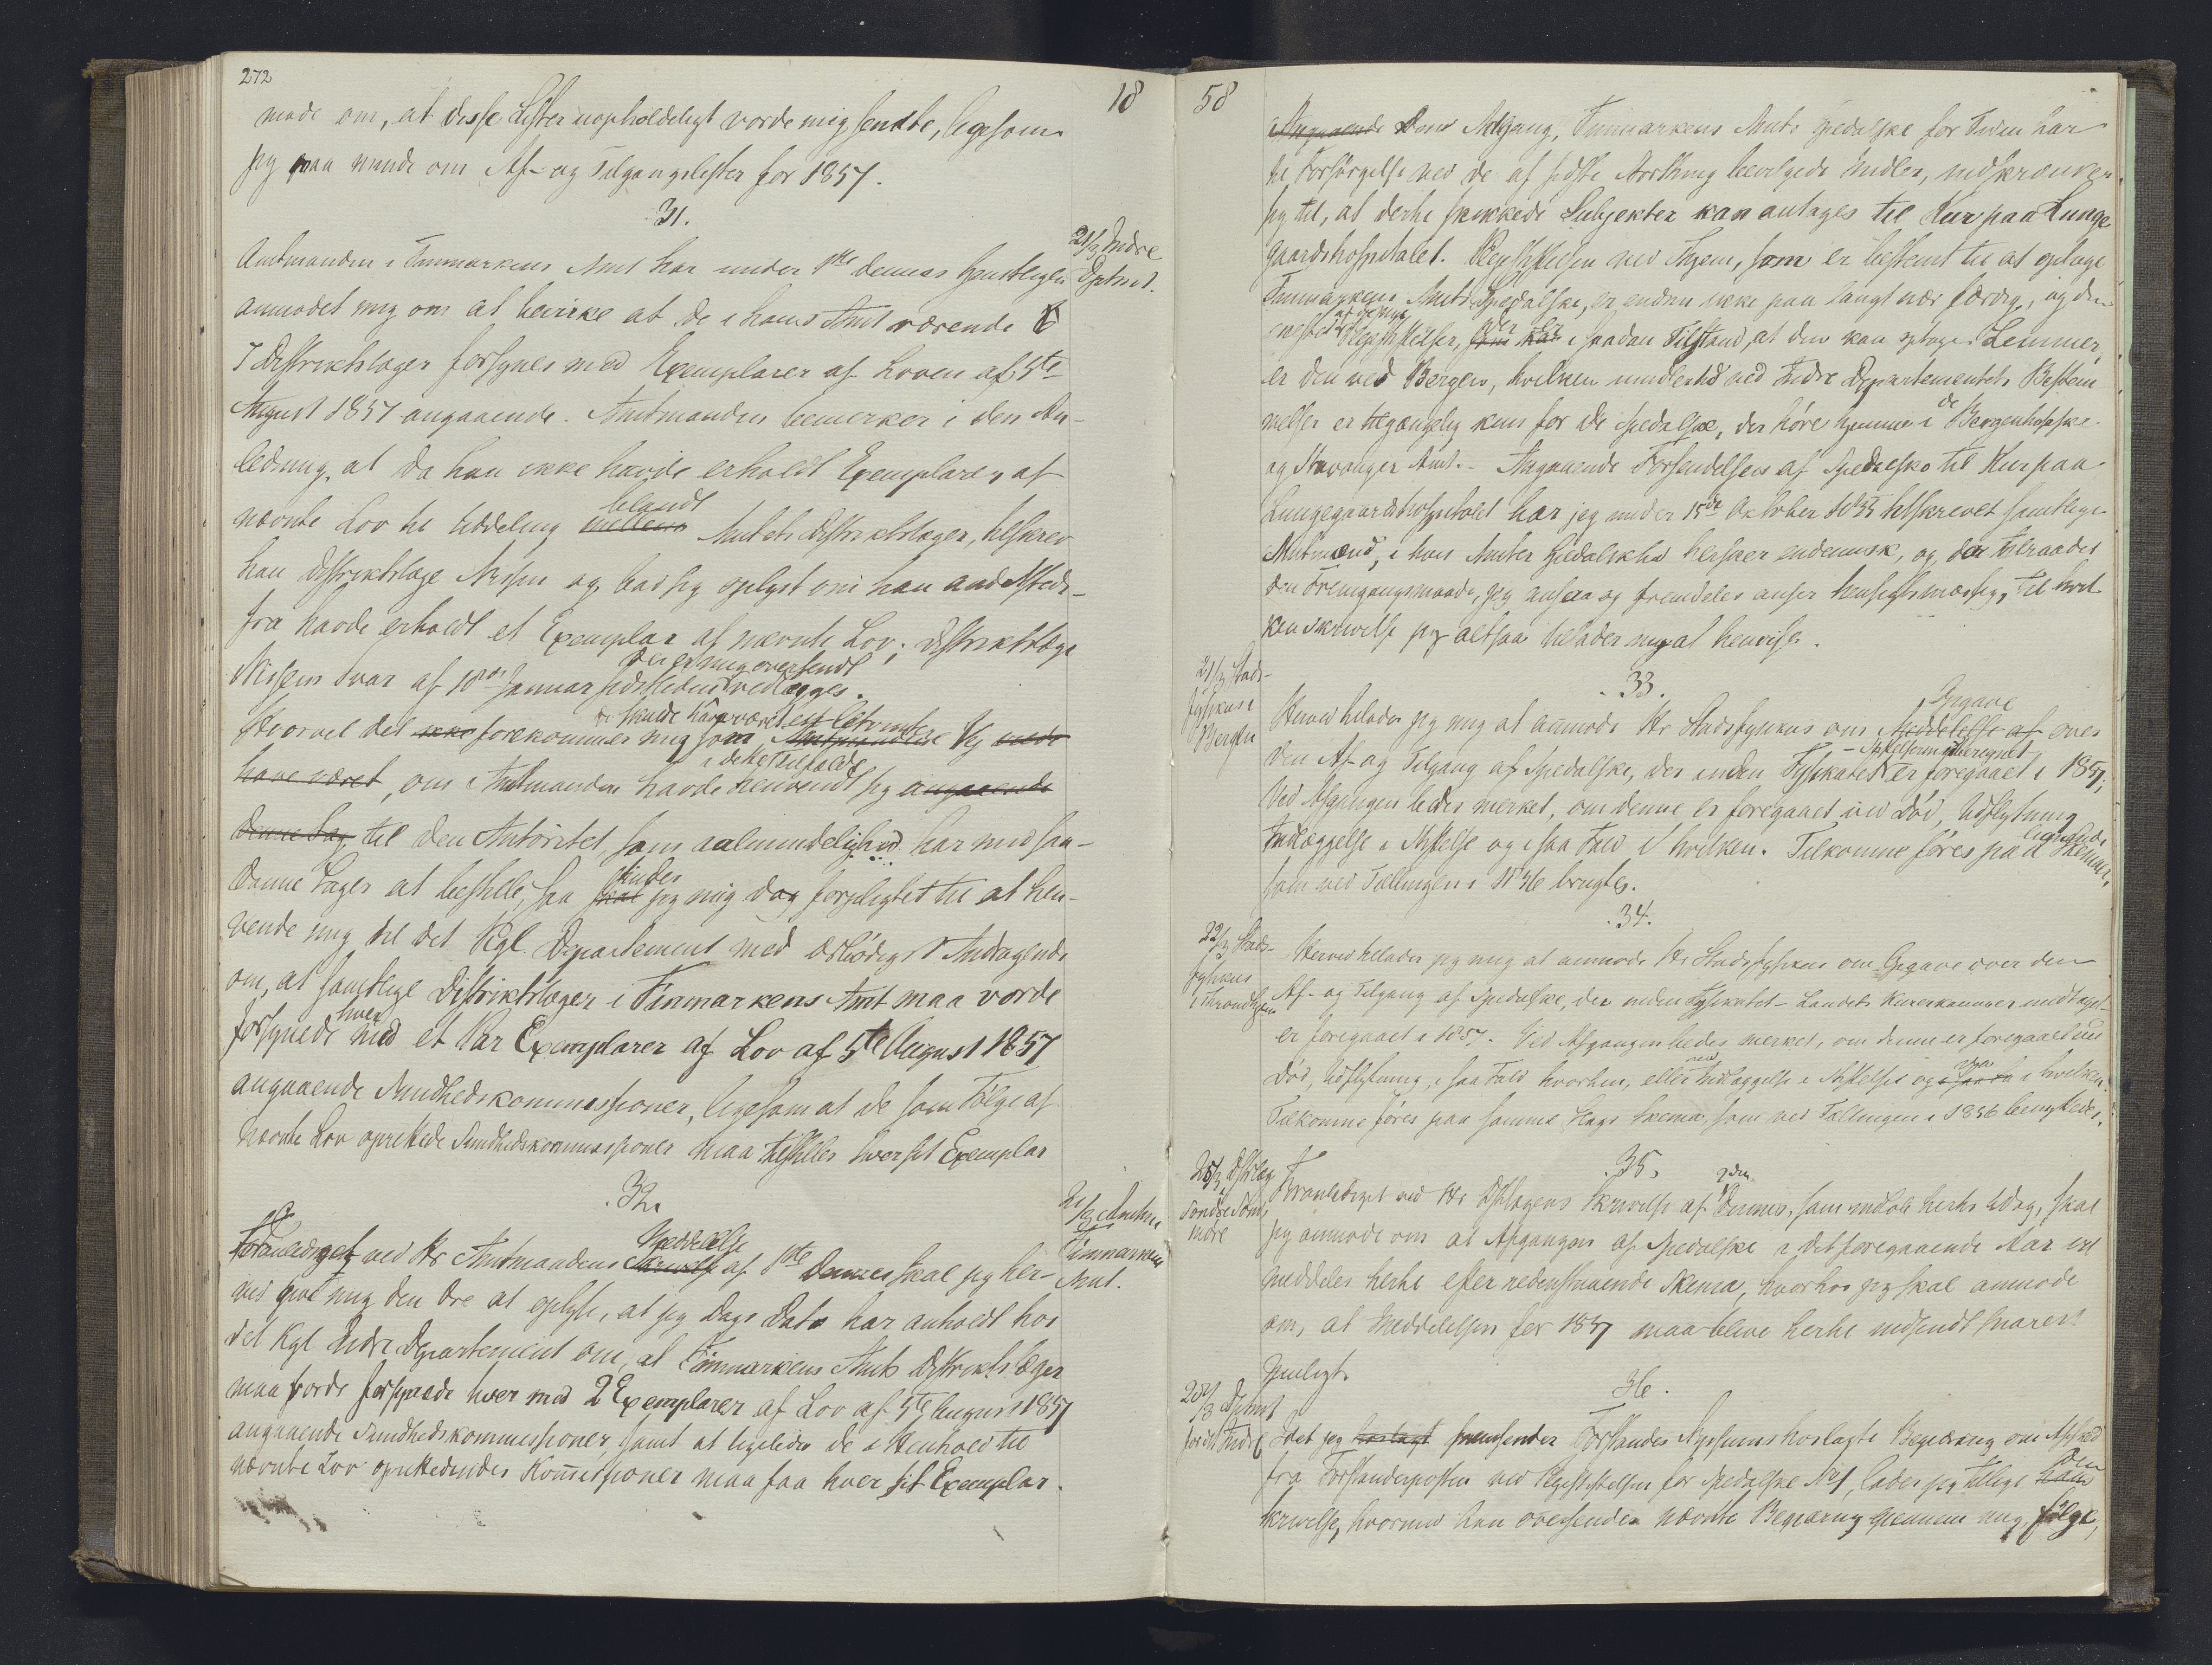 272
18
mode om, at disse Lister uopholdeligt vorde mig sendte, ligesom
jeg maa minde om Af- og Tilgangslister for 1857.
31.
21/3 Indre
Dptmt.
Amtmanden i Finmarkens Amt har under 1ste dennes
anmodet mig om at bevirke at de i hans Amt værende
7 Distriktslæger forsynes med Exemplarer af Loven af 5te
August 1857 angaaende. Amtmanden bemerker i den An-
ledning, at da han ikke havde erholdt Exemplarer af
blandt
nævnte Lov til Uddeling mellem Amtets Distriktslæger, tilskrev
han Distriktslæge Nissen og bad sig oplyst om han andetsteds-
fra havde erholdt et Exemplar af nævnte Lov; Distriktslæge
der er mig oversendt
Nissens Svar af 18de Januar sidstleden vedlægges.
det skulde have været et letvint
Hvorvel det ikke forekommer mig som Vej
i dette Tilfælde
have været, om Amtmanden havde henvendt sig angaaende
denne Sag til den Autoritet, som aalmindelighed har med saa-
finder
danne Sager at bestille, saa skal jeg mig dog forpligtet til at hen-
vende mig til det Kgl. Departement med ærbødigst Andragende
om, at samtlige Distriktslæger i Finmarkens Amt maa vorde
hver
forsynede med et Par Exemplarer af Lov af 5te August 1857
angaaende Sundhedskommissioner, ligesom at de som Følge af
nævnte Lov oprettede Sundhedskommissioner maa tilstilles hver sit Exemplar
32.
21/3 Amtm. i
Finmarkens
Amt.
Meddelelse
Foranlediget ved Hr Amtmandens Skrivelse af 1ste dennes skal jeg her-
ved give mig den Ære at oplyse, at jeg Dags Dato har anholdt hos
det Kgl Indre Departement om, at Finmarkens Amts Distriktslæger
maa vorde forsynede hver med 2 Exemplarer af Lov af 5te August 1857
angaaende Sundhedskommissioner, samt at ligeledes de i Henhold til
nævnte Lov oprettendes Kommissioner maa faa hver sit Exemplar.
58
Angaaende den Adgang, Finmarkens Amts Spedalske for Tiden har
til Forsørgelse ved de af sidste Storthing bevilgede Midler, indskrænker
sig til, at dertil skikkede Subjekter kan antages til Kur paa Lunge-
gaardshospitalet. Plejestiftelsen ved Thjem, som er bestemt til at optage
Finmarkens Amts Spedalske, er endnu ikke paa langt nær færdig, og den
af de nye
eneste Plejestiftelser, der er i saadan Tilstand, at den kan optage Lemmer,
er den ved Bergen, hvilken imidlertid ved Indre Departementets Bestem-
de
melser er tilgængelig kun for de Spedalske, der høre hjemme i Bergenhusske
og Stavanger Amt. - Angaaende Forsendelsen af Spedalske til Kur paa
Lungegaardshospitalet har jeg under 15de Oktober 1855 tilskrevet samtlige
Amtmænd, i hvis Amter Spedalskhed hersker endemisk, og der tilraadet
den Fremgangsmaade, jeg ansaa og fremdeles anser hensigtsmæssig, til hvil-
ken Skrivelse jeg altsaa tillader mig at henvise.
33.
21/3 Stads-
fysikus i
Bergen
Opgave
Herved tillader jeg mig at anmode Hr Stadsfysikus om Meddelelse af over
- Stiftelserne iberegnet
den Af- og Tilgang af Spedalske, der inden Fysikatet er foregaaet i 1857;
Ved Afgangen bedes merket, om denne er foregaaet ved Død, Udflytning
Indlæggelse i Stiftelse og i saa Fald i hvilken. Tilkomne føres paa Skemaer,
som ved Tællingen i 1856 brugtes.
34.
22/3 Stads-
fysikus
i Throndhjem
Herved tillader jeg mig at anmode Hr Stadsfysikus om Opgave over den
Af- og Tilgang af Spedalske, der inden Fysikatet
er foregaaet i 1857. Ved Afgangen bedes merket, om denne er foregaaet ved
ved
Død, Udflytning, i saa Fald hvorhen, eller Indlæggelse i Stiftelse og i hvilken.
Tilkomne føres paa samme Slags Skema, som ved Tællingen i 1856 benyttedes.
35.
25/3 Dstrlæg.
Søndre Sønd-
møre
Foranlediget ved Hr Dstlægens Skrivelse af dennes, som indløb hertil Idag, skal
jeg anmode om at Afgangen af Spedalske i det foregaaende Aar
meddeles hertil efter nedenstaaende Skema, hvorhos jeg skal anmode
om, at Meddelelsen for 1857 maa blive hertil indsendt snarest
muligt.
36.
25/3 Dptmt
for det Indre
Idet jeg hoslagt fremsender Forstander hoslagte Begjæring om Afsked
fra Forstanderposten ved Plejestiftelsen for Spedalske No 1, lader jeg tillige
Skrivelse, hvormed han oversender nævnte Begjæring gjennem mig, følge,